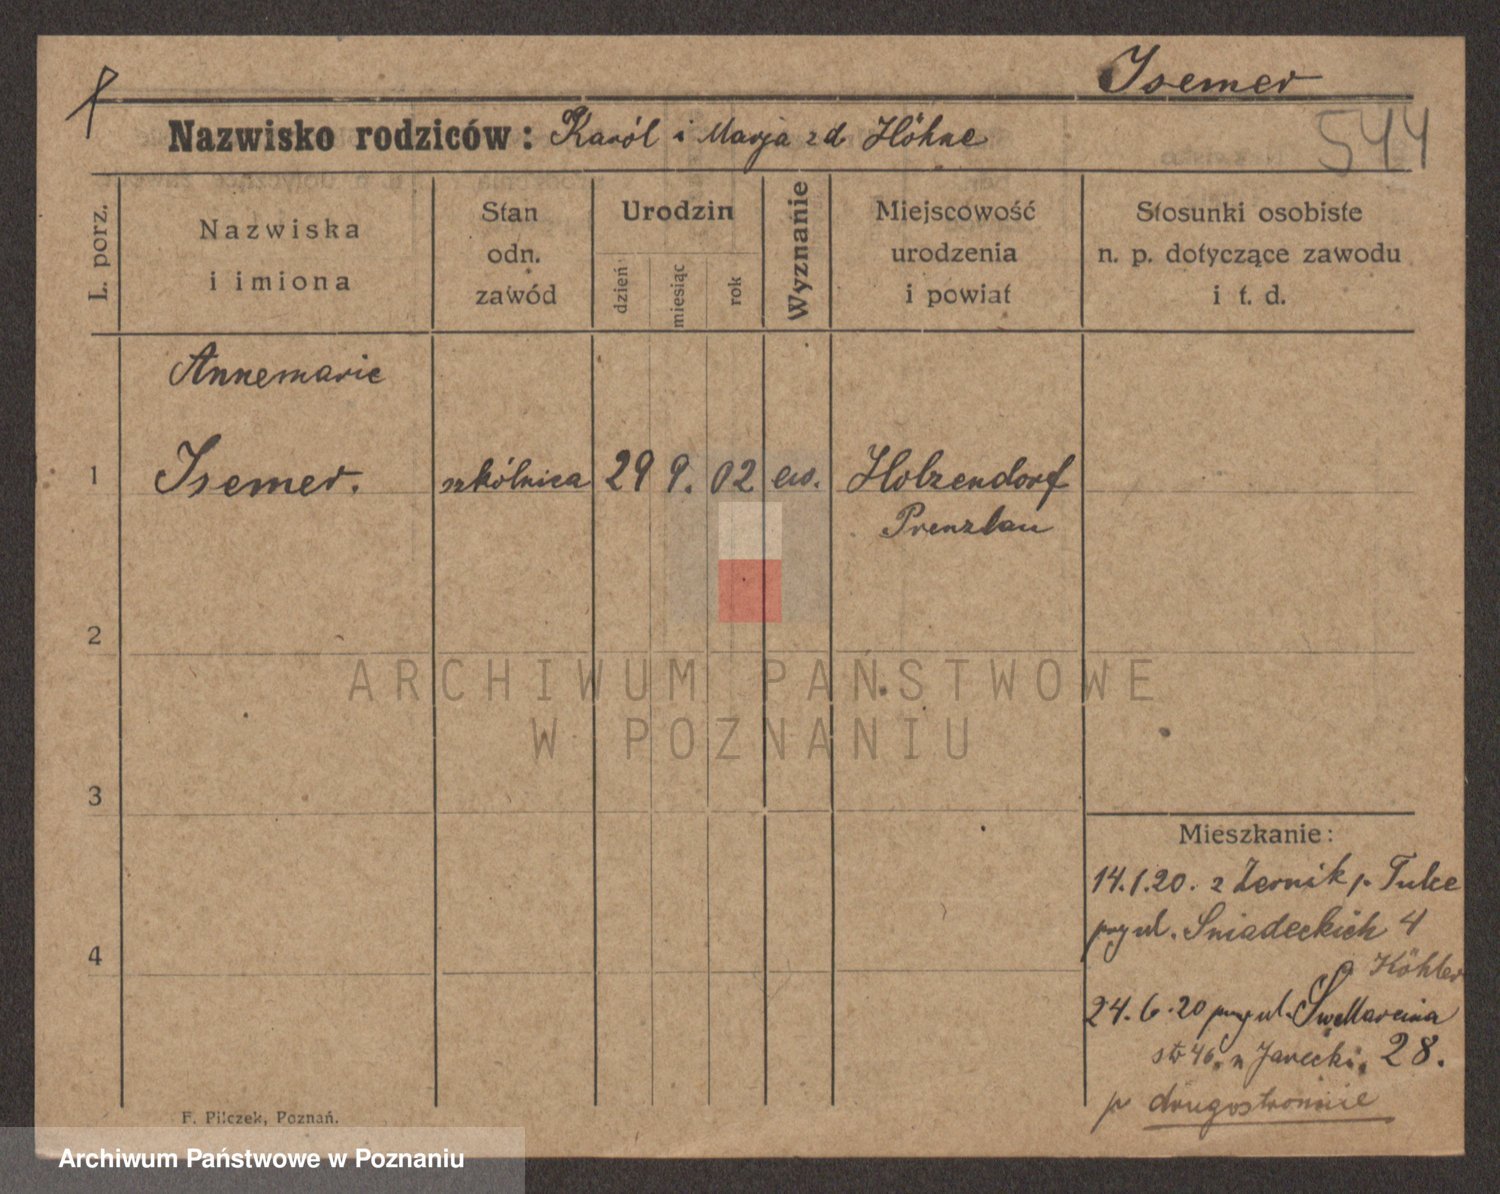 Isemer
Nazwisko rodziców: Karól i Marja zd Höhne
544
L. porz.
Nazwiska
i imiona
Stan
odn.
zawód
Urodzin
dzień
miesiąc
rok
Wyznanie
Miejscowość
urodzenia
i powiat
Stosunki osobiste
n. p. dotyczące zawodu
i t. d.
Annemarie
1 Isemer. szkólnica 29 9. 02 ew. Holzendorf
Prenzlau
2
ARCHIWUM PAŃSTWOWE
W POZNANIU
3
Mieszkanie:
14.1.20. z Żernik p. Tulce
przy ul. Sniadeckich 4
Köhler
4
24.6.20 przy ul. Św Marcina
46. u Jarecki. 28.
p drugostronnie
F. Pilczek, Poznań.
Archiwum Państwowe w Poznaniu